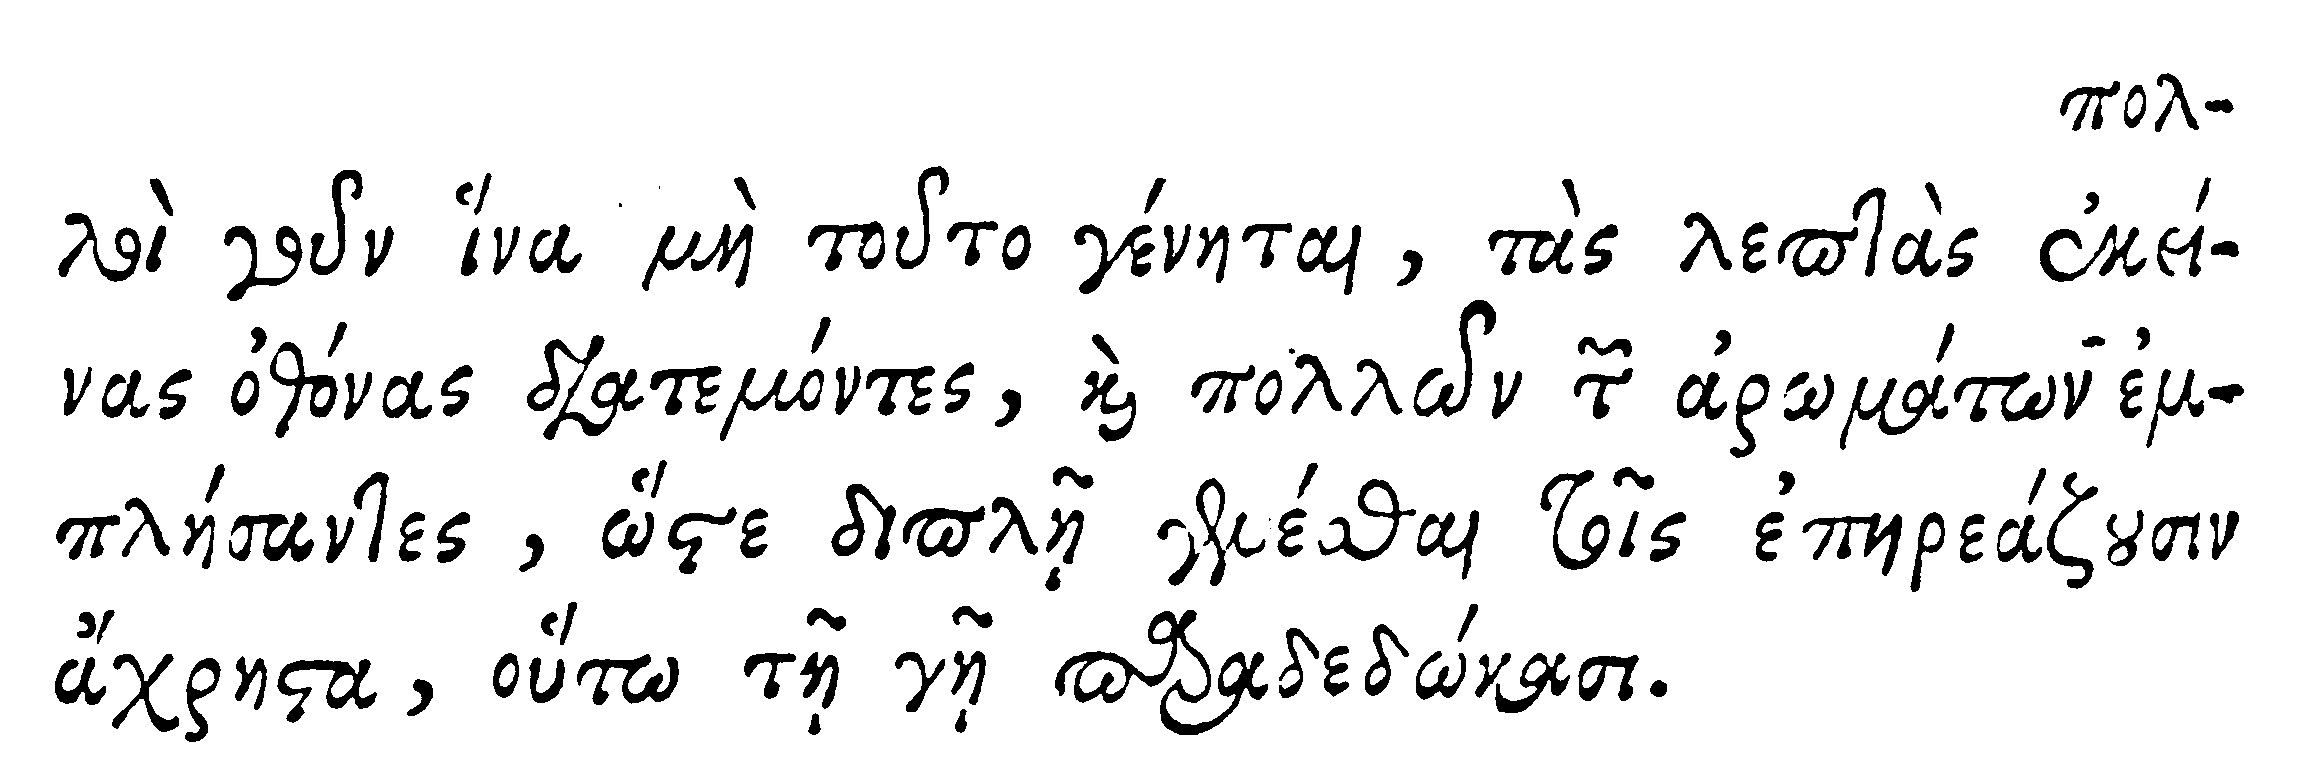 πολ-
λοὶ γοῦν ἵνα μὴ τοῦτο γένηται, τὰς λεπτὰς ἐκεί-
νας ὀθόνας διατεμόντες, καὶ πολλῶν τῶν ἀρωμάτων ἐμ-
πλήσαντες, ὥστε διπλῇ γενέσθαι τοῖς ἐπηρεάζουσιν
ἄχρηστα, οὕτω τῇ γῇ παραδεδώκασι.